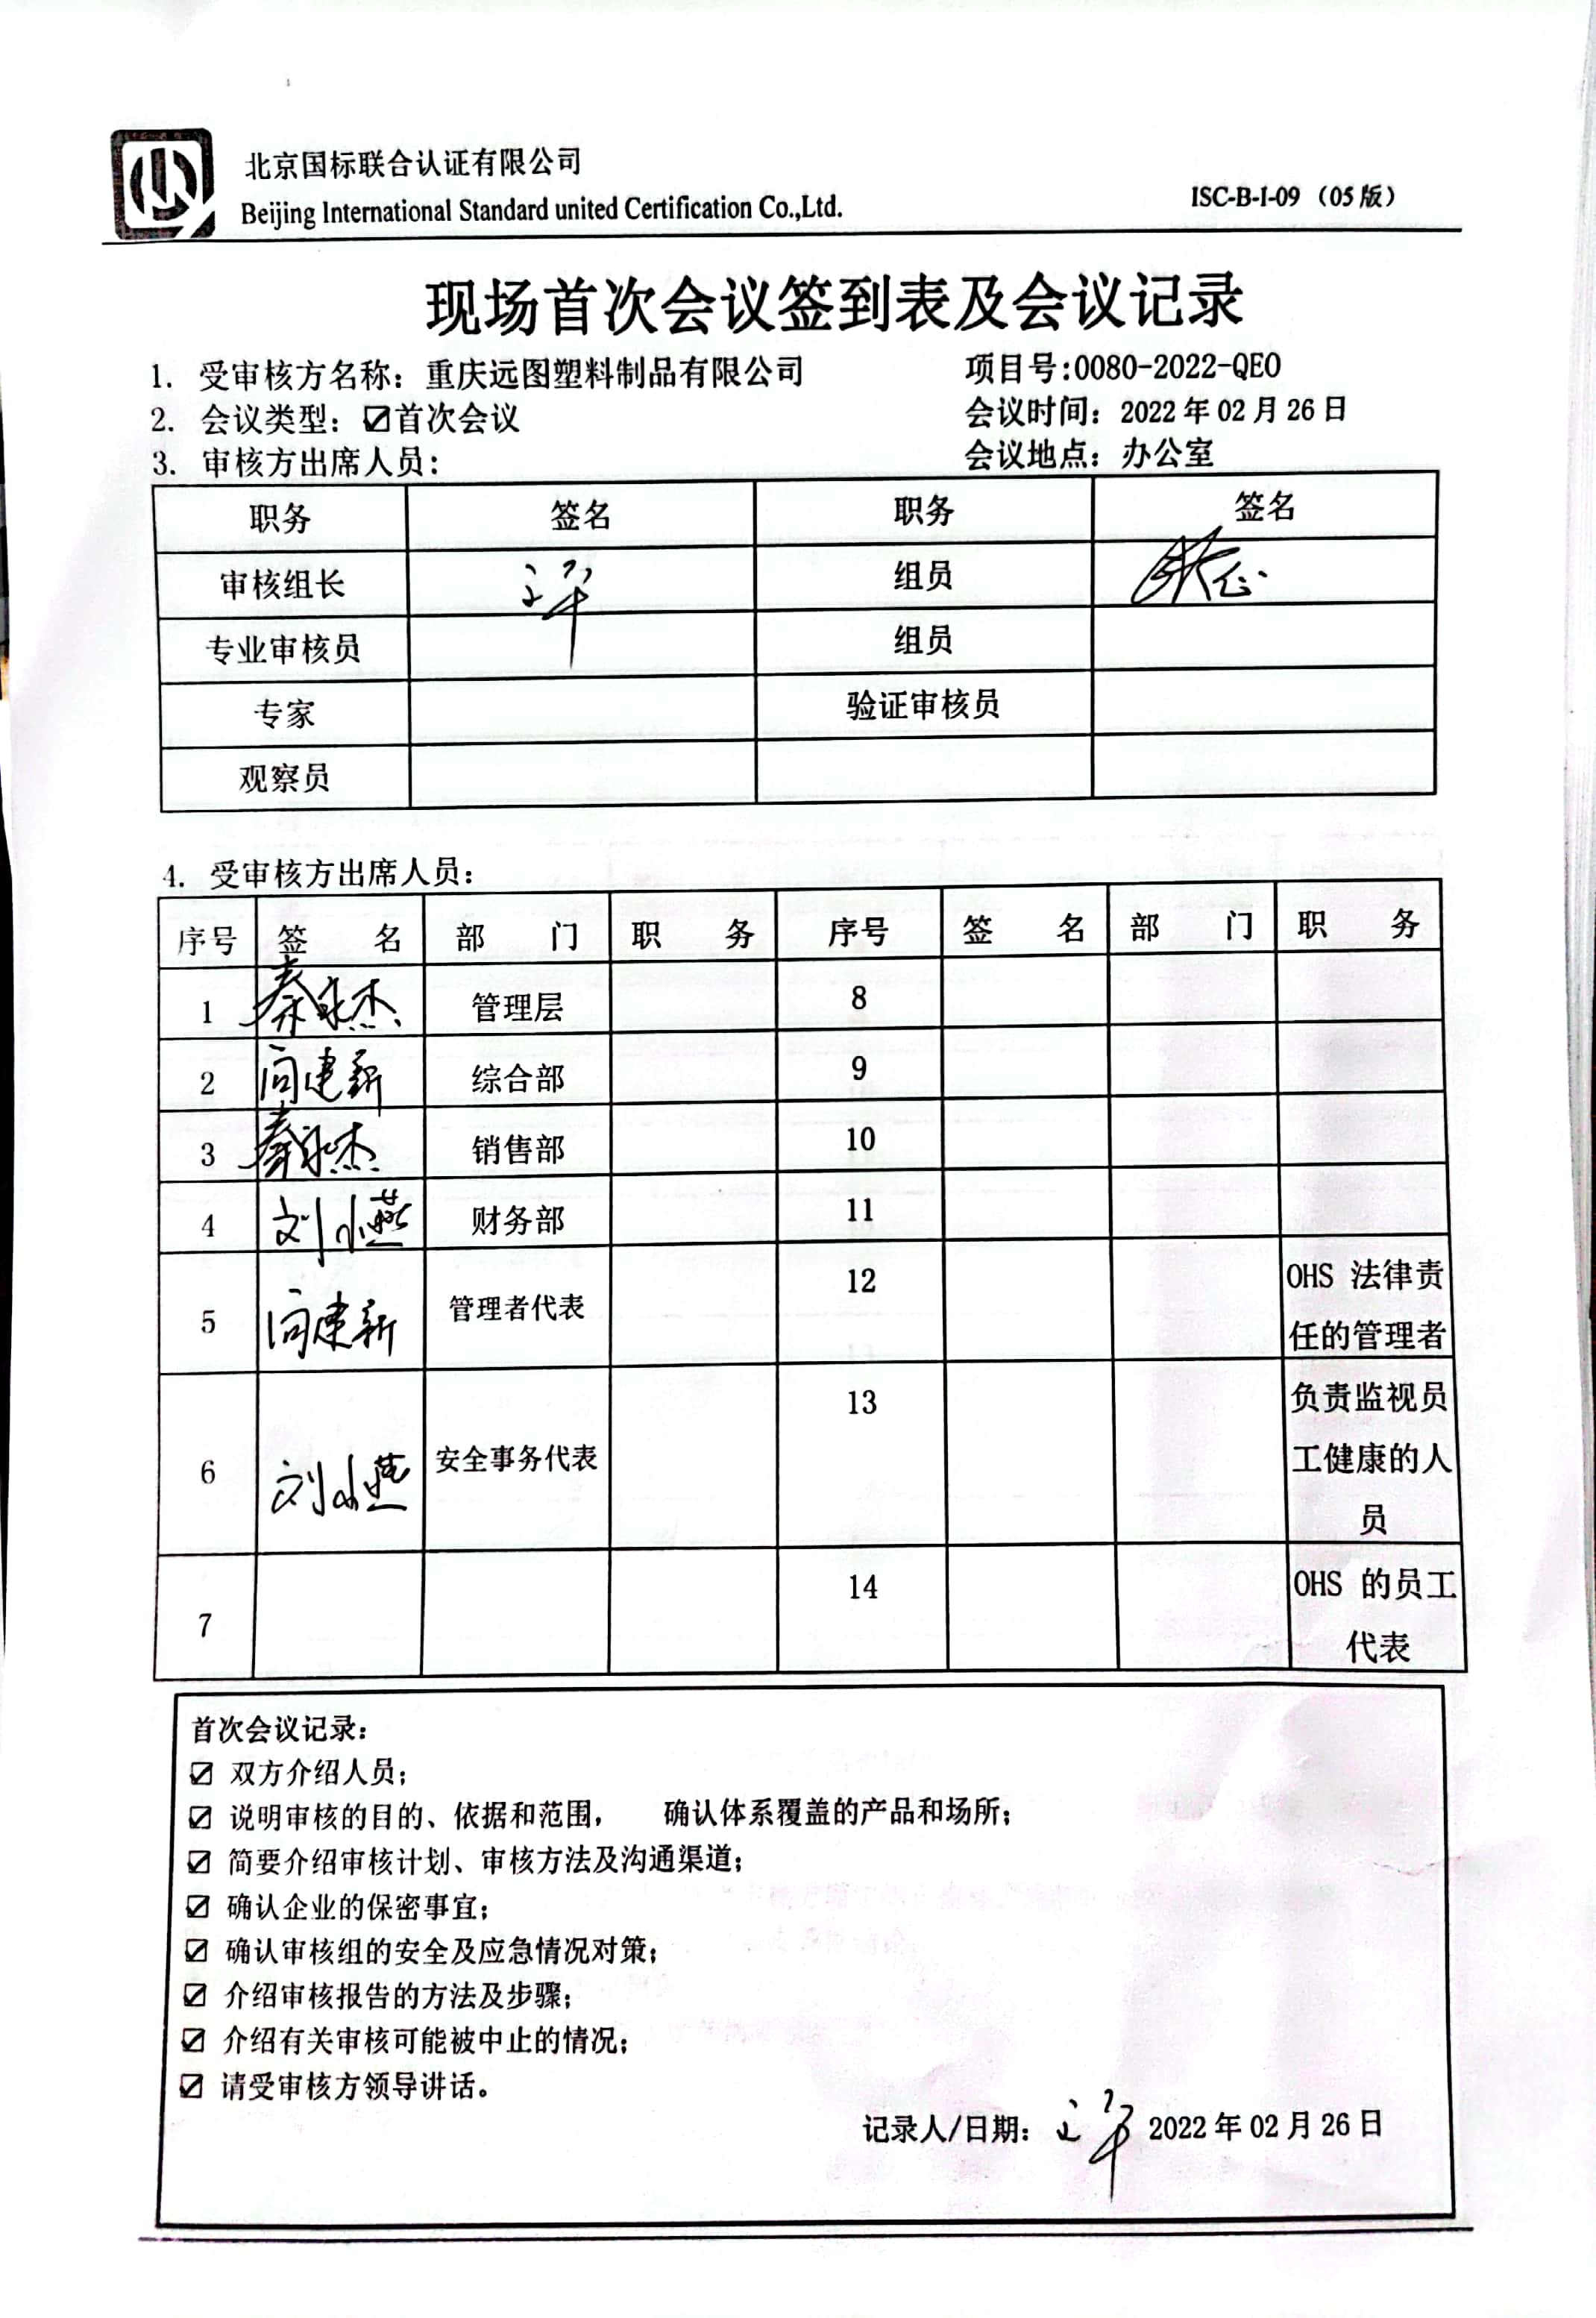 北京国标联合认证有限公司
Beijing International Standard united Certification Co.,Ltd.
ISC-B-I-09（05版）
现场首次会议签到表及会议记录
1. 受审核方名称：重庆远图塑料制品有限公司 项目号:0080-2022-QEO
2. 会议类型：☑首次会议 会议时间：2022年02月26日
3. 审核方出席人员： 会议地点：办公室
职务 签名 职务 签名
审核组长 组员
专业审核员 组员
专家 验证审核员
观察员
4. 受审核方出席人员：
序号 签 名 部 门 职 务 序号 签 名 部 门 职 务
1 秦永杰 管理层 8
2 向建新 综合部 9
3 秦永杰 销售部 10
4 刘小燕 财务部 11
5 向建新 管理者代表 12 OHS 法律责
任的管理者
6 刘小燕 安全事务代表 13 负责监视员
工健康的人
员
7 14 OHS 的员工
代表
首次会议记录：
☑ 双方介绍人员；
☑ 说明审核的目的、依据和范围， 确认体系覆盖的产品和场所；
☑ 简要介绍审核计划、审核方法及沟通渠道；
☑ 确认企业的保密事宜；
☑ 确认审核组的安全及应急情况对策；
☑ 介绍审核报告的方法及步骤；
☑ 介绍有关审核可能被中止的情况；
☑ 请受审核方领导讲话。
记录人/日期： 2022年02月26日